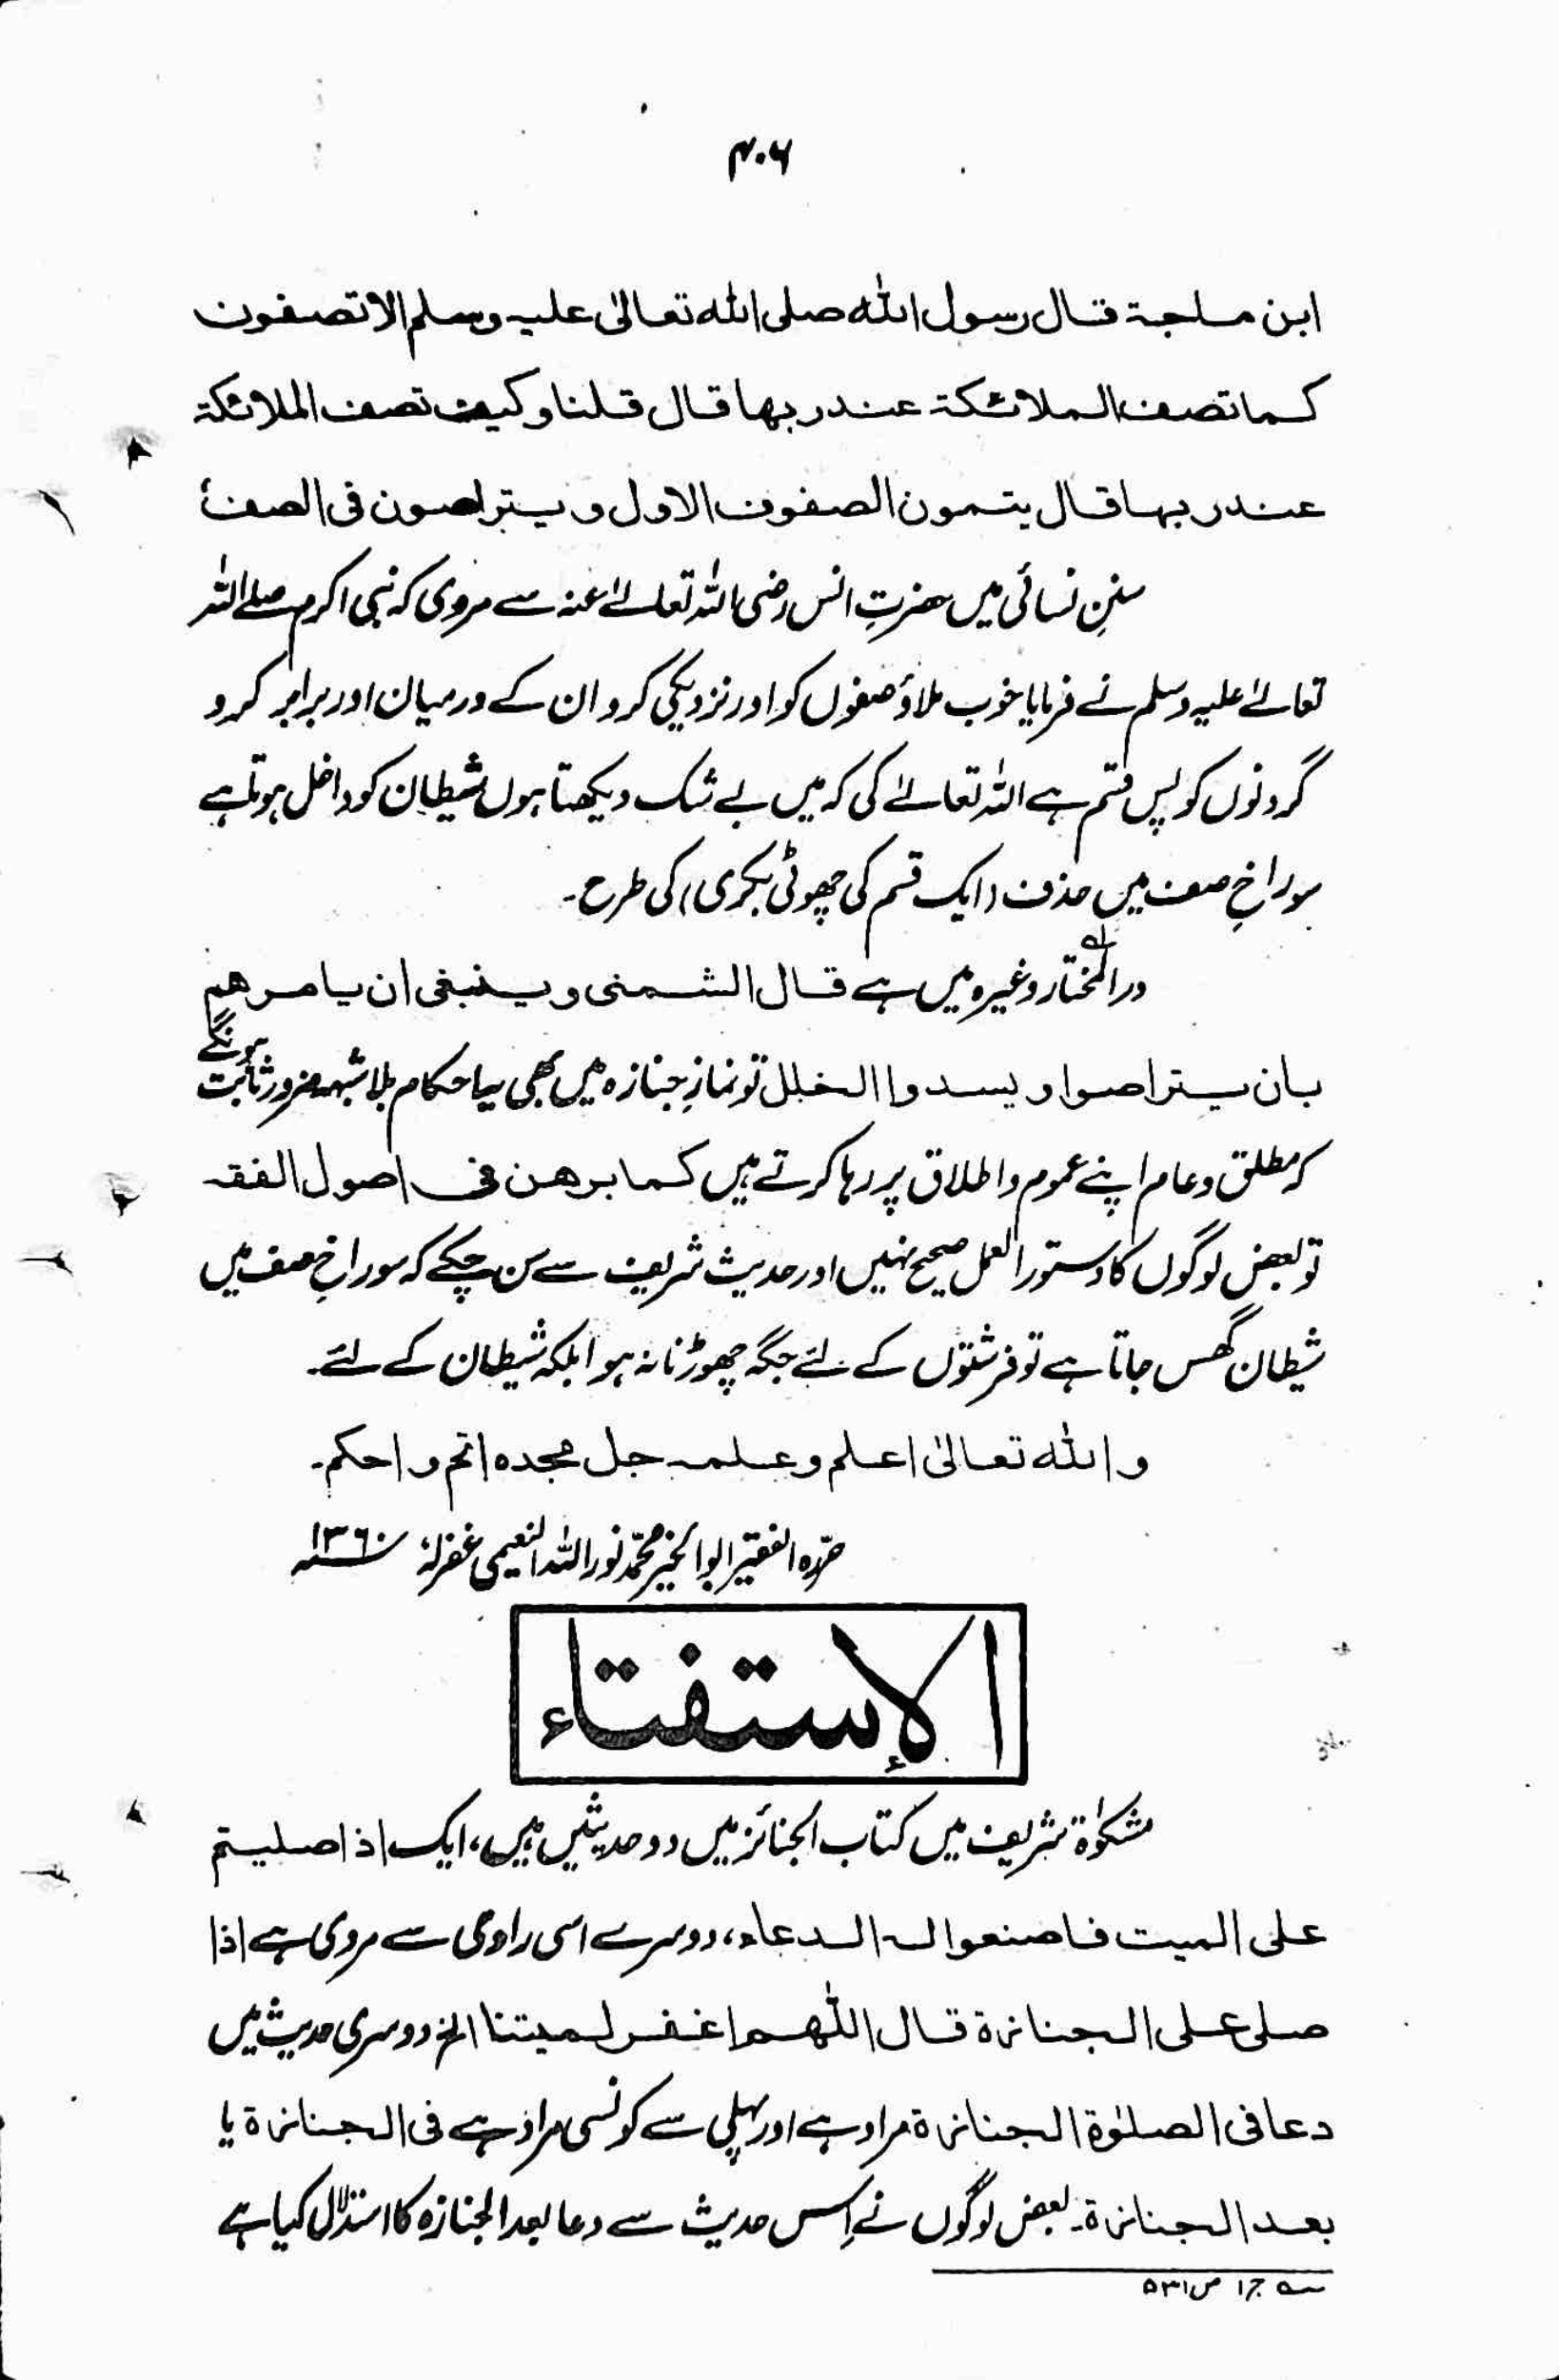 ۴۰۶
ابن ماجة قال رسول الله صلى الله تعالىٰ عليه وسلم الا تصفون
كما تصف الملائكة عند ربها قال قلنا وكيف تصف الملائكة
عند ربها قال يتمون الصفوف الاول و يتراصون فى الصف
سننِ نسائی میں حضرتِ انس رضی اللہ تعالےٰ عنہ سے مروی کہ نبی اکرم صلے اللہ
تعالےٰ علیہ وسلم نے فرمایا خوب ملاؤ صفوں کو اور نزدیکی کرو ان کے درمیان اور برابر کرو
گردنوں کو پس قسم ہے اللہ تعالےٰ کی کہ میں بے شک دیکھتا ہوں شیطان کو داخل ہوتا ہے
سوراخِ صف میں حذف (ایک قسم کی چھوٹی بکری) کی طرح۔
درالمختار وغیرہ میں ہے قال الشمنى و ينبغى ان يا مرهم
بان يتراصوا و يسدوا الخلل تو نمازِ جنازہ میں بھی یہ احکام بلا شبہہ ضرور ثابت ہونگے
کہ مطلق و عام اپنے عموم و اطلاق پر رہا کرتے ہیں كما برهن فى اصول الفقه
تو بعض لوگوں کا دستور العمل صحیح نہیں اور حدیث شریف سے سن چکے کہ سوراخِ صف میں
شیطان گھس جاتا ہے تو فرشتوں کے لئے جگہ چھوڑنا نہ ہوا بلکہ شیطان کے لئے۔
و الله تعالىٰ اعلم و علمه جل مجده اتم و احكم۔
حرّرہ الفقیر ابو الخیر محمّد نور اللہ النعیمی غفرلہٗ ۱۳۶۰ سنہ
الإستفتاء
مشکوٰۃ شریف میں کتاب الجنائز میں دو حدیثیں ہیں، ایک اذا صليتم
على الميت فاصنعوا له الدعاء، دوسرے اسی راوی سے مروی ہے اذا
صلى على الجنازة قال اللّٰهم اغفر لميتنا الخ دوسری حدیث میں
دعا فى الصلوٰة الجنازة مراد ہے اور پہلی سے کونسی مراد ہے فى الجنازة یا
بعد الجنازة۔ بعض لوگوں نے اِس حدیث سے دعا بعد الجنازہ کا استدلال کیا ہے
لہ ج۱ ص۵۳۱